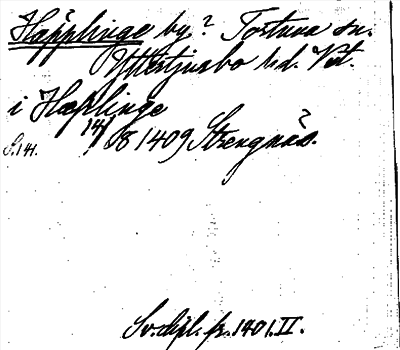 Häpplinge by? Tortuna sn.
Yttertjurbo hd. Vstm.
i Hæplinge
14/8 1409 Strengnäs.
S. 141.
Sv. dipl. fr. 1401. II.